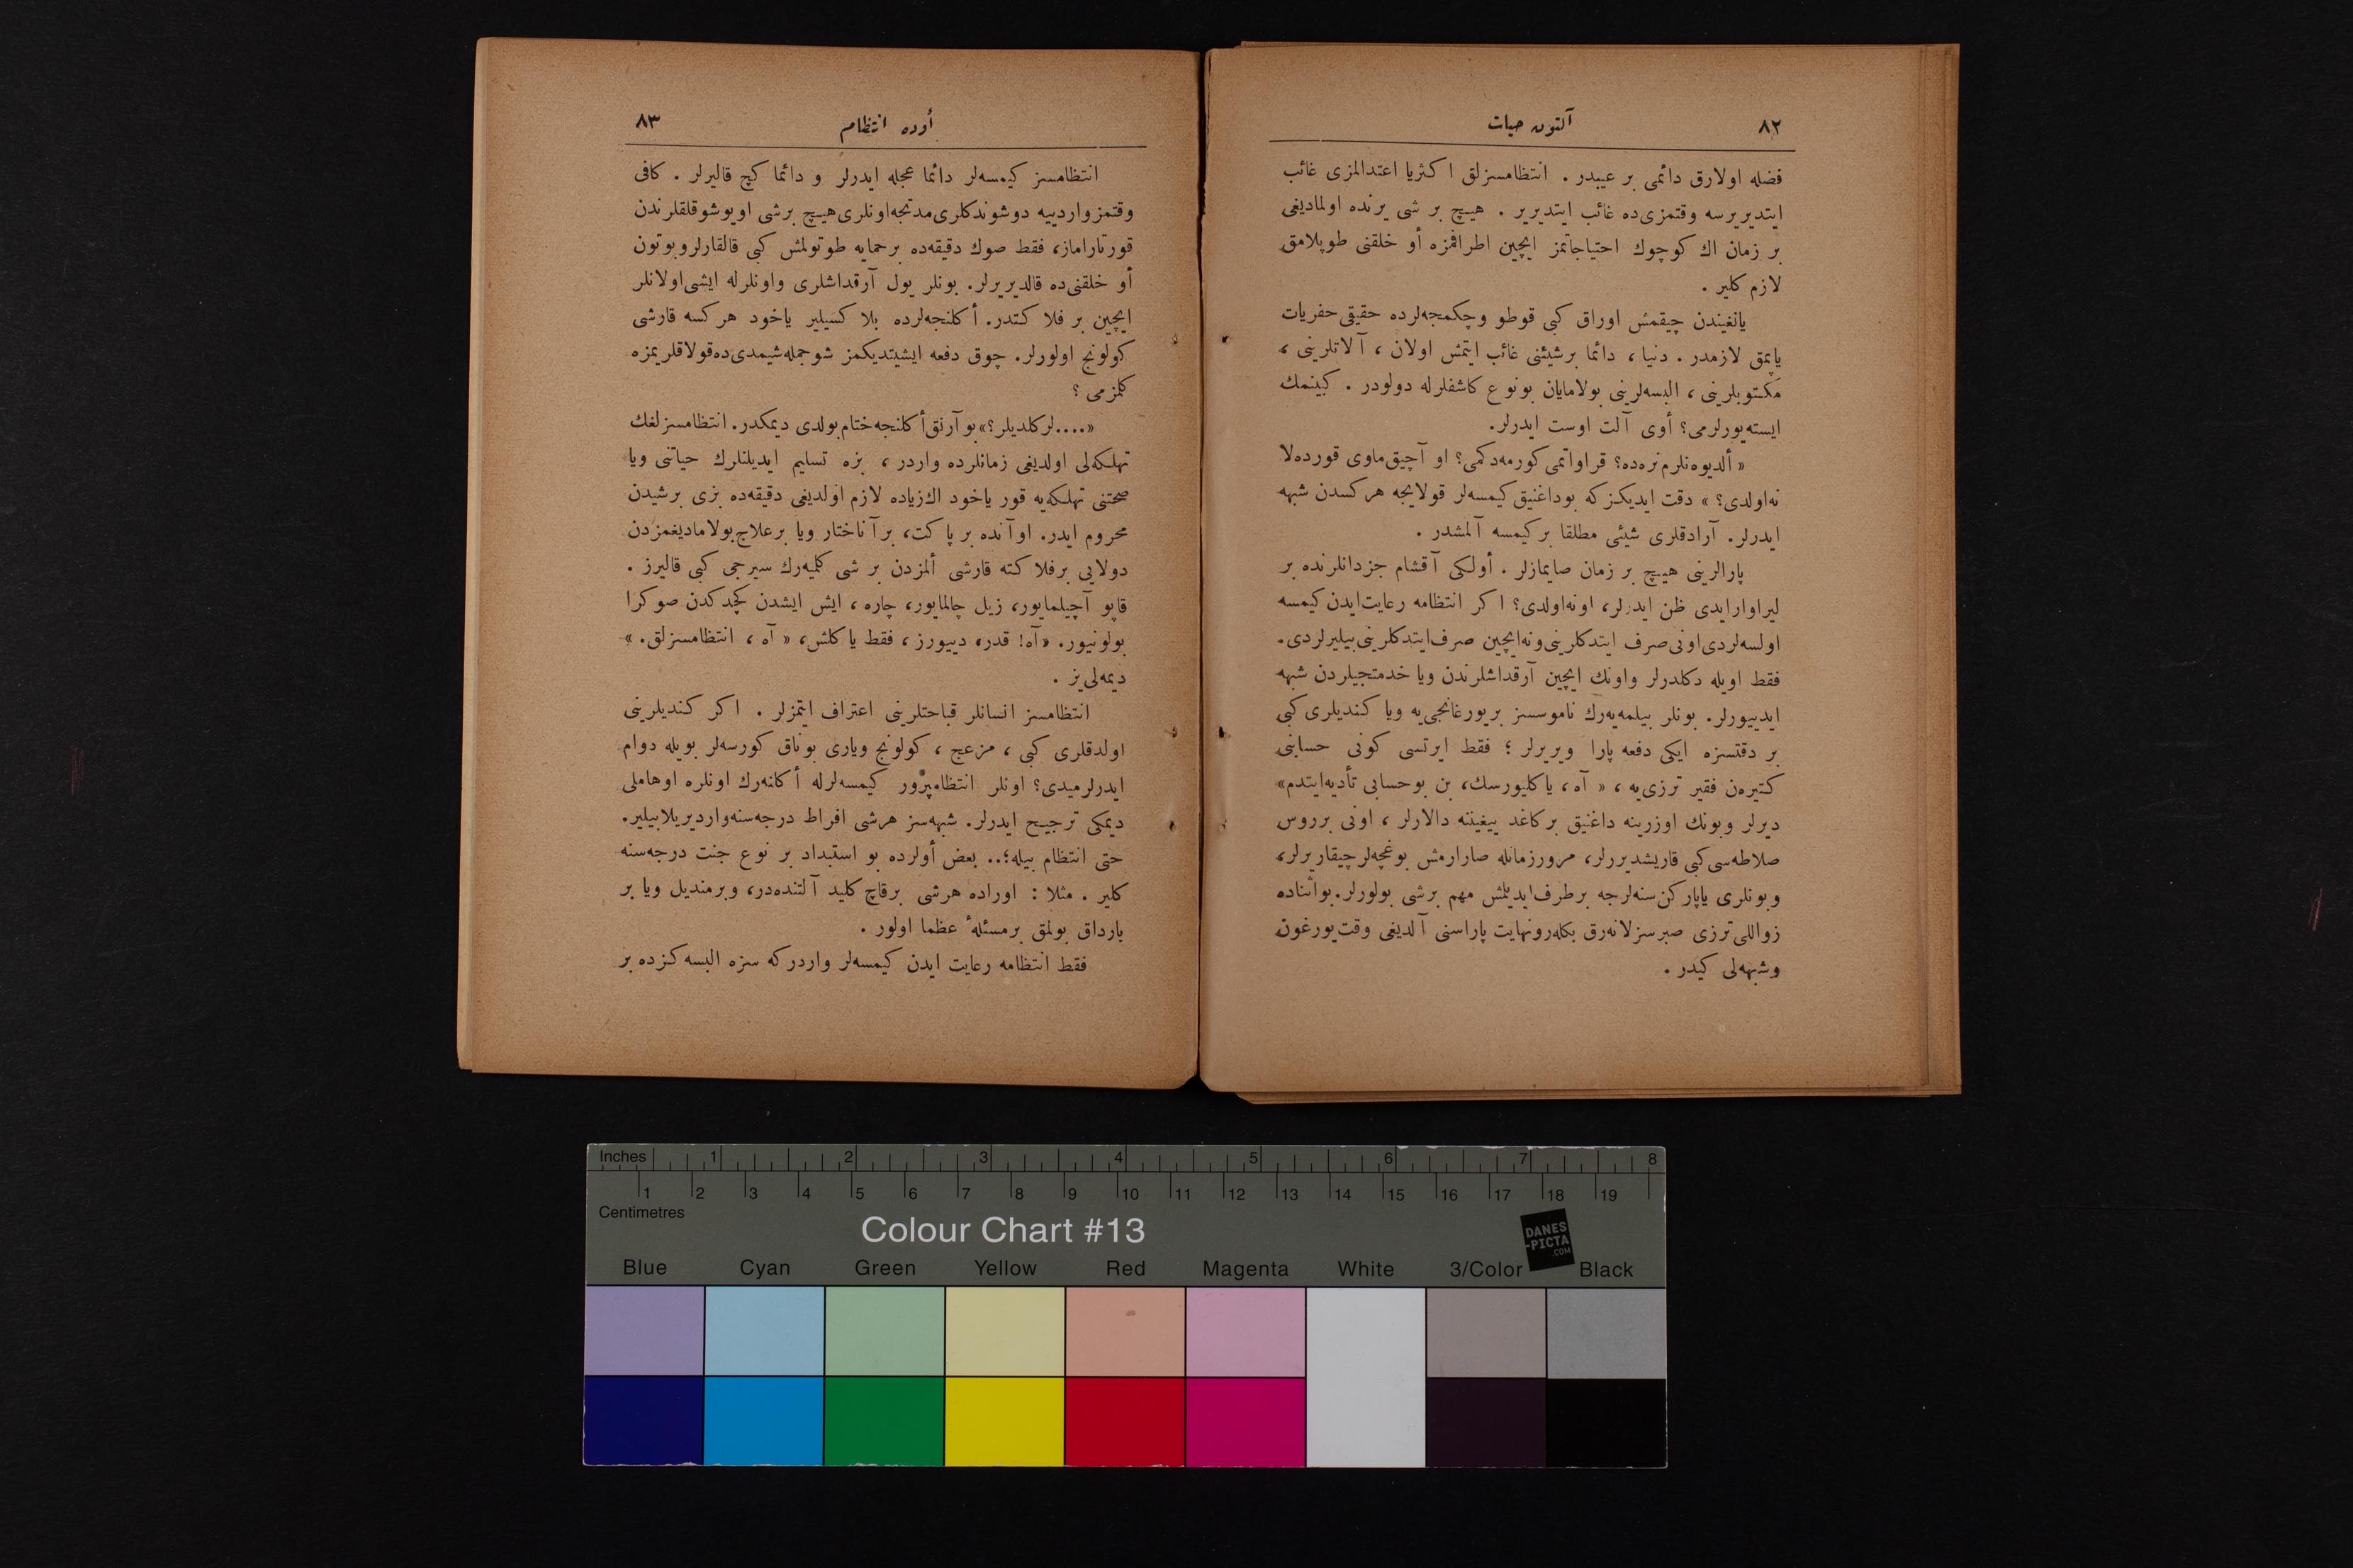 ٨٢
آلتون حیات
فضله اولارق دائمی بر عیبدر . انتظامسزلق اکثریا اعتدالمزی غائب
ایتدیریرسه وقتمزی‌ده غائب ایتدیریر . هیچ بر شی یرنده اولمادیغی
بر زمان اك کوچوك احتیاجاتمز ایچین اطرافمزه أو خلقنی طوپلامق
لازم کلیر .
یانغیندن چیقمش اوراق کبی قوطو وچکمجه‌لرده حقیقی حفریات
یاپمق لازمدر . دنیا ، دائما برشیئنی غائب ایتمش اولان ، آلاتلرینی ،
مکتوبلرینی ، البسه‌لرینی بولامایان بونوع کاشفلرله دولودر . کیینمك
ایسته‌یورلرمی؟ أوی آلت اوست ایدرلر.
« ألدیوه‌نلرم نره‌ده؟ قراواتمی کورمه‌دکمی؟ او آچیق ماوی قورده‌لا
نه‌اولدی؟ » دقت ایدیکزکه بوداغنیق کیمسه‌لر قولایجه هرکسدن شبهه
ایدرلر. آرادقلری شیئی مطلقا برکیمسه آلمشدر .
پارالرینی هیچ بر زمان صایمازلر . أولکی آقشام جزدانلرنده بر
لیراوارایدی ظن ایدرلر، اونه‌اولدی؟ اکر انتظامه رعایت‌ایدن کیمسه
اولسه‌لردی‌اونی‌صرف ایتدکلرینی‌ونه‌ایچین صرف‌ایتدکلرینی‌بیلیرلردی.
فقط اویله دکلدرلر واونك ایچین آرقداشلرندن ویا خدمتجیلردن شبهه
ایدییورلر. بونلر بیلمه‌یه‌رك ناموسسز بریورغانجی‌یه ویا کندیلری کبی
بر دقتسزه ایکی دفعه پارا ویریرلر ؛ فقط ایرتسی کونی حسابنی
کتیره‌ن فقیر ترزی‌یه ، « آه ، یاکلیورسك، بن بوحسابی تأدیه‌ایتدم»
دیرلر وبونك اوزرینه داغنیق برکاغد ییغیننه دالارلر ، اونی برروس
صلاطه‌سی‌کبی قاریشدیررلر، مرورزمانله صارارمش بوغچه‌لرچیقاریرلر،
وبونلری یاپارکن‌سنه‌لرجه برطرف‌ایدیلمش مهم برشی بولورلر.بواثناده
زواللی‌ترزی صبرسزلانه‌رق بکله‌رونهایت پاراسنی آلدیغی وقت‌یورغون
وشبهه‌لی کیدر .
أوده انتظام
٨٣
انتظامسز کیمسه‌لر دائما عجله ایدرلر و دائما کچ قالیرلر . کافی
وقتمزواردییه دوشوندکلری‌مدتجه‌اونلری‌هیچ برشی اویوشوقلقلرندن
قورتاراماز، فقط صوك دقیقه‌ده برحمایه طوتولمش کبی قالقارلروبوتون
أو خلقنی‌ده قالدیریرلر. بونلر یول آرقداشلری واونلرله ایشی‌اولانلر
ایچین بر فلاکتدر. أکلنجه‌لرده بلا کسیلیر یاخود هرکسه قارشی
کولونج اولورلر. چوق دفعه ایشیتدیکمز شوجمله‌شیمدی‌ده‌قولاقلریمزه
کلمزمی ؟
«....لرکلدیلر؟» بوآرتق‌أکلنجه‌ختام‌بولدی دیمکدر. انتظامسزلغك
تهلکه‌لی اولدیغی زمانلرده واردر ، بزه تسلیم ایدیلنلرك حیاتنی ویا
صحتنی تهلکه‌یه قور یاخود اك‌زیاده لازم اولدیغی دقیقه‌ده بزی برشیدن
محروم ایدر. اوآنده بر پاکت، برآناختار ویا برعلاج‌بولامادیغمزدن
دولایی برفلاکته قارشی ألمزدن بر شی کلمیه‌رك سیرجی کبی قالیرز .
قاپو آچیلمایور، زیل چالمایور، چاره ، ایش ایشدن کچدکدن صوکرا
بولونیور. «آه! قدر» دییورز ، فقط یاکلش، « آه ، انتظامسزلق. »
دیمه‌لی‌یز .
انتظامسز انسانلر قباحتلرینی اعتراف ایتمزلر . اکر کندیلرینی
اولدقلری کبی ، مزعج ، کولونج ویاری بوناق کورسه‌لر بویله دوام
ایدرلرمیدی؟ اونلر انتظامپرور کیمسه‌لرله أکلنه‌رك اونلره اوهاملی
دیمکی ترجیح ایدرلر. شبهه‌سز هرشی افراط درجه‌سنه‌واردیریلابیلیر.
حتی انتظام بیله؛.. بعض أولرده بو استبداد بر نوع جنت درجه‌سنه
کلیر . مثلا : اوراده هرشی برقاچ کلید آلتنده‌در، وبرمندیل ویا بر
بارداق بولمق برمسئلهٔ عظما اولور .
فقط انتظامه رعایت ایدن کیمسه‌لر واردرکه سزه البسه‌کزده بر
Inches 1 2 3 4 5 6 7 8
1 2 3 4 5 6 7 8 9 10 11 12 13 14 15 16 17 18 19
Centimetres
Colour Chart #13
DANES
-PICTA
.COM
Blue Cyan Green Yellow Red Magenta White 3/Color Black